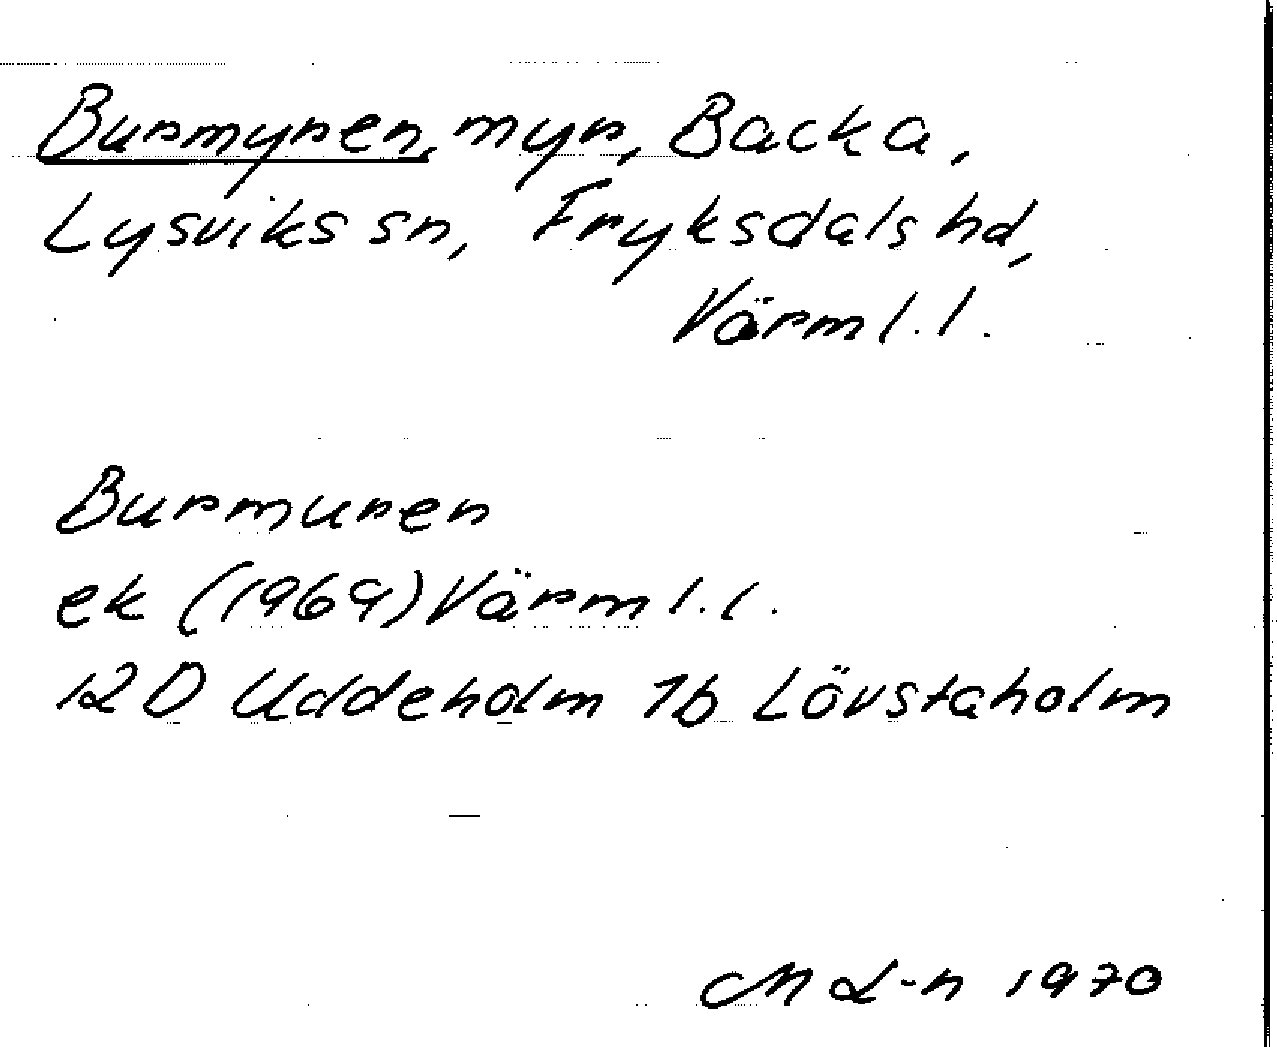 Burmyren, myr, Backa,
Lysviks sn, Fryksdals hd,
Värml. l.
Burmuren
ek (1969) Värml. l.
12 D Uddeholm 1b Lövstaholm
M L-n 1970